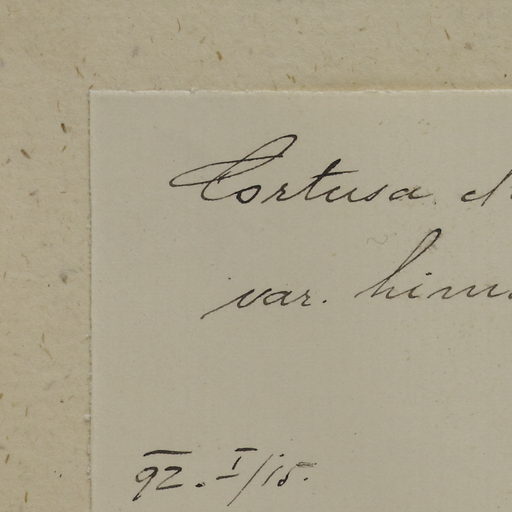 Cortusa
var.
92. I/15.